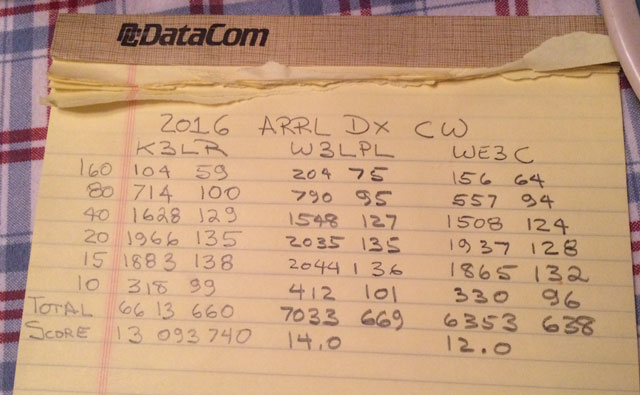 DataCom
2016 ARRL DX CW
K3LR W3LPL WE3C
160 104 59 204 75 156 64
80 714 100 790 95 557 94
40 1628 129 1548 127 1508 124
20 1966 135 2035 135 1937 128
15 1883 138 2044 136 1865 132
10 318 99 412 101 330 96
TOTAL 6613 660 7033 669 6353 638
SCORE 13 093 740 14.0 12.0